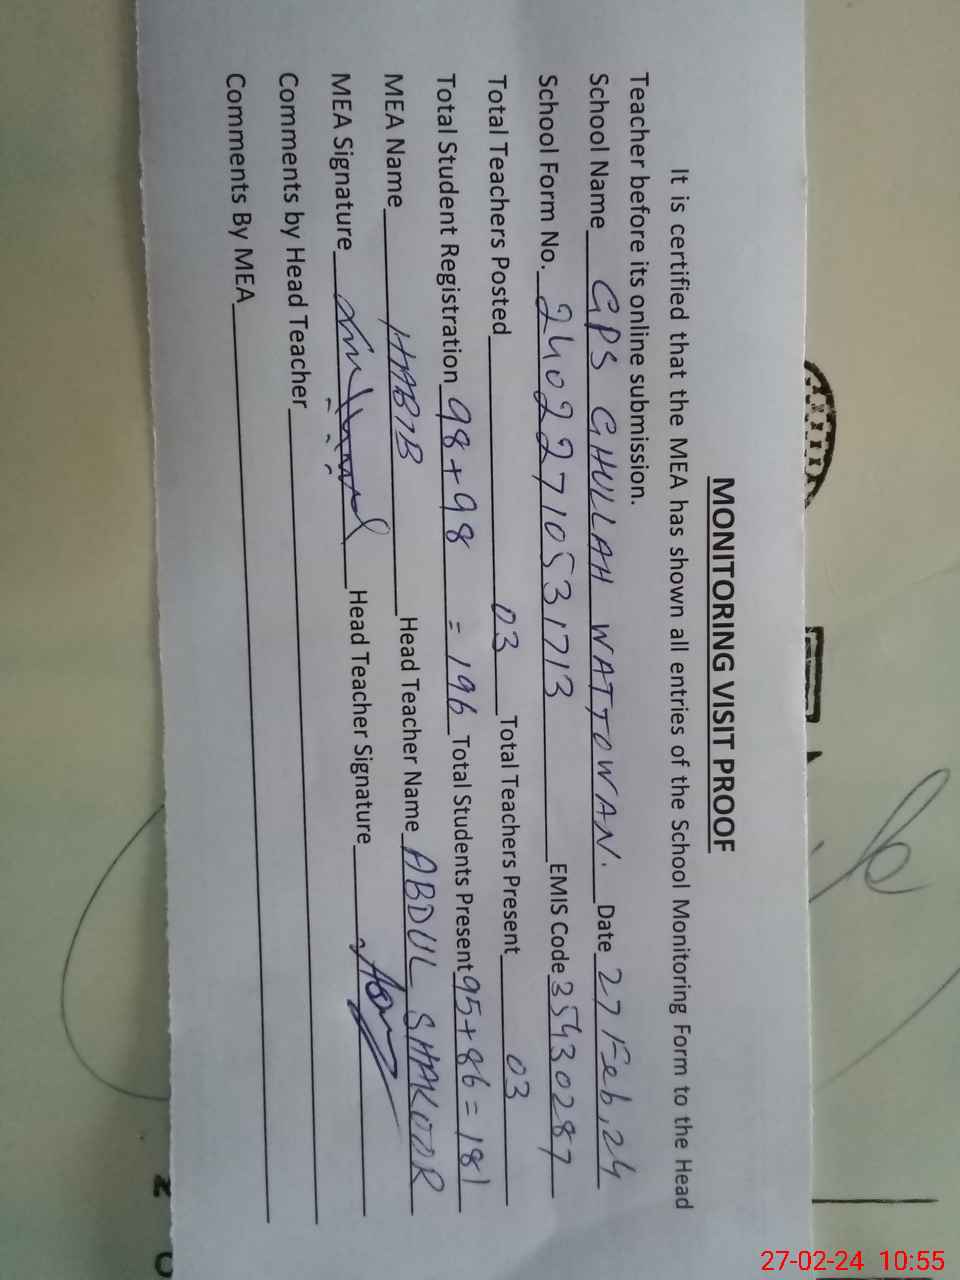 MONITORING VISIT PROOF
It is certified that the MEA has shown all entries of the School Monitoring Form to the Head
Teacher before its online submission.
School Name GPS GHULLAH WATTOWAN. Date 27 Feb, 24
School Form No. 24022710531713 EMIS Code 35430287
Total Teachers Posted 03 Total Teachers Present 03
Total Student Registration 98+98 = 196 Total Students Present 95+86=181
MEA Name HABIB Head Teacher Name ABDUL SHAKOOR
MEA Signature Head Teacher Signature
Comments by Head Teacher
Comments By MEA
27-02-24 10:55